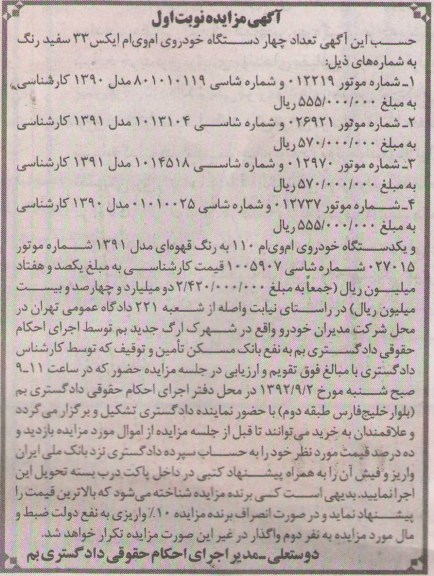 آگهی مزایده نوبت اول
حسب این آگهی تعداد چهار دستگاه خودروی ام‌وی‌ام ایکس۳۳ سفید رنگ
به شماره‌های ذیل:
۱ـ شماره موتور ۰۱۲۲۱۹ و شماره شاسی ۸۰۱۰۱۰۱۱۹ مدل ۱۳۹۰ کارشناسی
به مبلغ ۵۵۵/۰۰۰/۰۰۰ ریال
۲ـ شماره موتور ۰۲۶۹۲۱ و شماره شاسی ۱۰۱۳۱۰۴ مدل ۱۳۹۱ کارشناسی
به مبلغ ۵۷۰/۰۰۰/۰۰۰ ریال
۳ـ شماره موتور ۰۱۲۹۷۰ و شماره شاسی ۱۰۱۴۵۱۸ مدل ۱۳۹۱ کارشناسی
به مبلغ ۵۷۰/۰۰۰/۰۰۰ ریال
۴ـ شماره موتور ۰۱۲۷۳۷ و شماره شاسی ۰۱۰۱۰۰۲۵ مدل ۱۳۹۰ کارشناسی
به مبلغ ۵۵۵/۰۰۰/۰۰۰ ریال
و یکدستگاه خودروی ام‌وی‌ام ۱۱۰ به رنگ قهوه‌ای مدل ۱۳۹۱ شماره موتور
۰۲۷۰۱۵ شماره شاسی ۱۰۰۵۹۰۷ قیمت کارشناسی به مبلغ یکصد و هفتاد
میلیون ریال (جمعاً به مبلغ ۲/۴۲۰/۰۰۰/۰۰۰ دو میلیارد و چهارصد و بیست
میلیون ریال) در راستای نیابت واصله از شعبه ۲۲۱ دادگاه عمومی تهران در
محل شرکت مدیران خودرو واقع در شهرک ارگ جدید بم توسط اجرای احکام
حقوقی دادگستری بم به نفع بانک مسکن تأمین و توقیف که توسط کارشناس
دادگستری با مبالغ فوق تقویم و ارزیابی در جلسه مزایده حضور که در ساعت ۱۱ـ۹
صبح شنبه مورخ ۱۳۹۲/۹/۲ در محل دفتر اجرای احکام حقوقی دادگستری بم
(بلوار خلیج‌فارس طبقه دوم) با حضور نماینده دادگستری تشکیل و برگزار می‌گردد
و علاقمندان به خرید می‌توانند تا قبل از جلسه مزایده از اموال مورد مزایده بازدید و
ده درصد قیمت مورد نظر خود را به حساب سپرده دادگستری نزد بانک ملی ایران
واریز و فیش آن را به همراه پیشنهاد کتبی در داخل پاکت درب بسته تحویل این
اجرا نمایید. بدیهی است کسی برنده مزایده شناخته می‌شود که بالاترین قیمت را
پیشنهاد نماید و در صورت انصراف برنده مزایده ۱۰٪ واریزی به نفع دولت ضبط و
مال مورد مزایده به نفر دوم واگذار در غیر این صورت مزایده تکرار خواهد شد.
دوستعلی ـ مدیر اجرای احکام حقوقی دادگستری بم